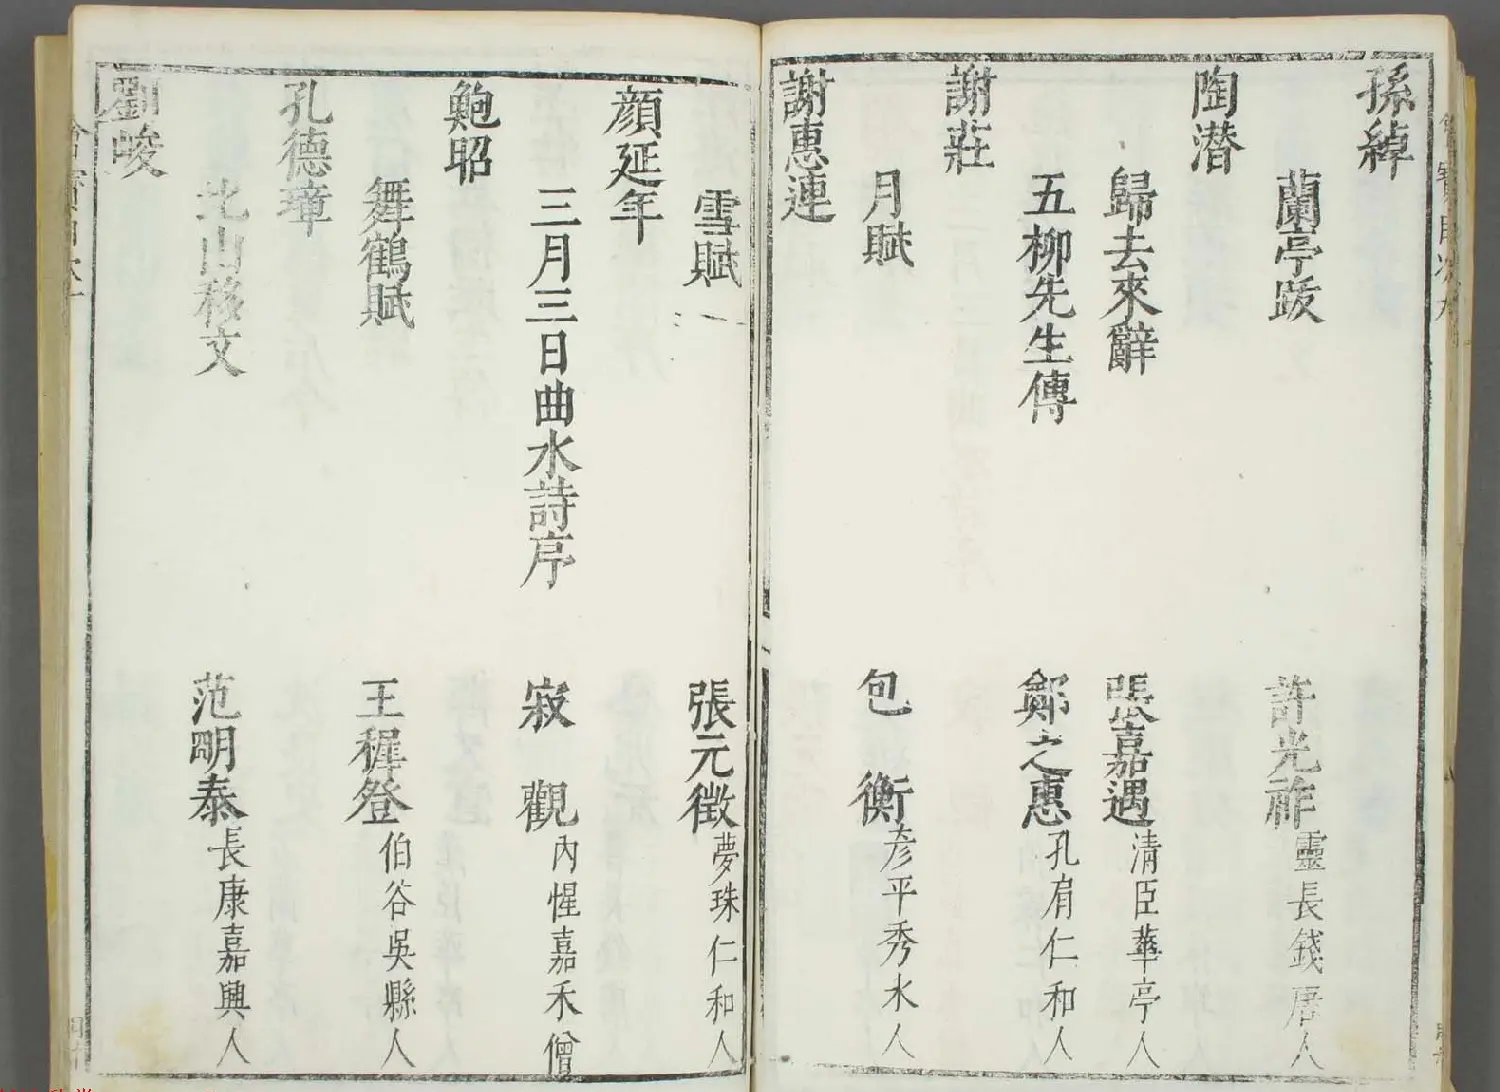 孫綽
蘭亭跋 許光祚 靈長錢唐人
陶潛
歸去來辭 張嘉遇 清臣華亭人
五柳先生傳 鄭之惠 孔肩仁和人
謝莊
月賦 包衡 彥平秀水人
謝惠連
雪賦 張元徵 夢珠仁和人
顏延年
三月三日曲水詩序 寂觀 內惺嘉禾僧
鮑昭
舞鶴賦 王穉登 伯谷吳縣人
孔德璋
北山移文 范明泰 長康嘉興人
劉峻